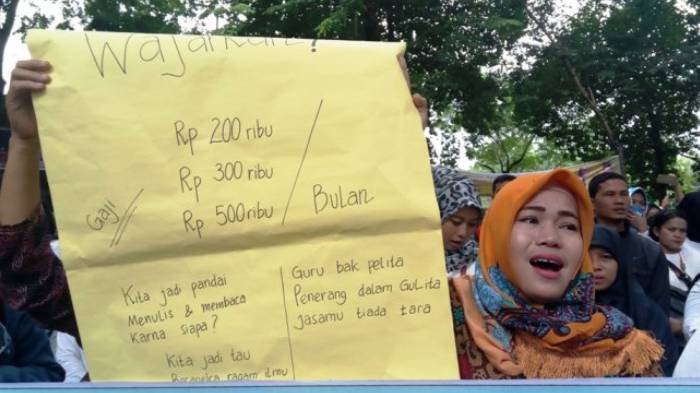 Wajarkah?
Gaji
Rp 200 ribu
Rp 300 ribu
Rp 500 ribu
/ Bulan
Kita jadi pandai
Menulis & membaca
Karna siapa?
Kita jadi tau
Beraneka ragam ilmu
Guru bak pelita
Penerang dalam Gulita
jasamu tiada tara